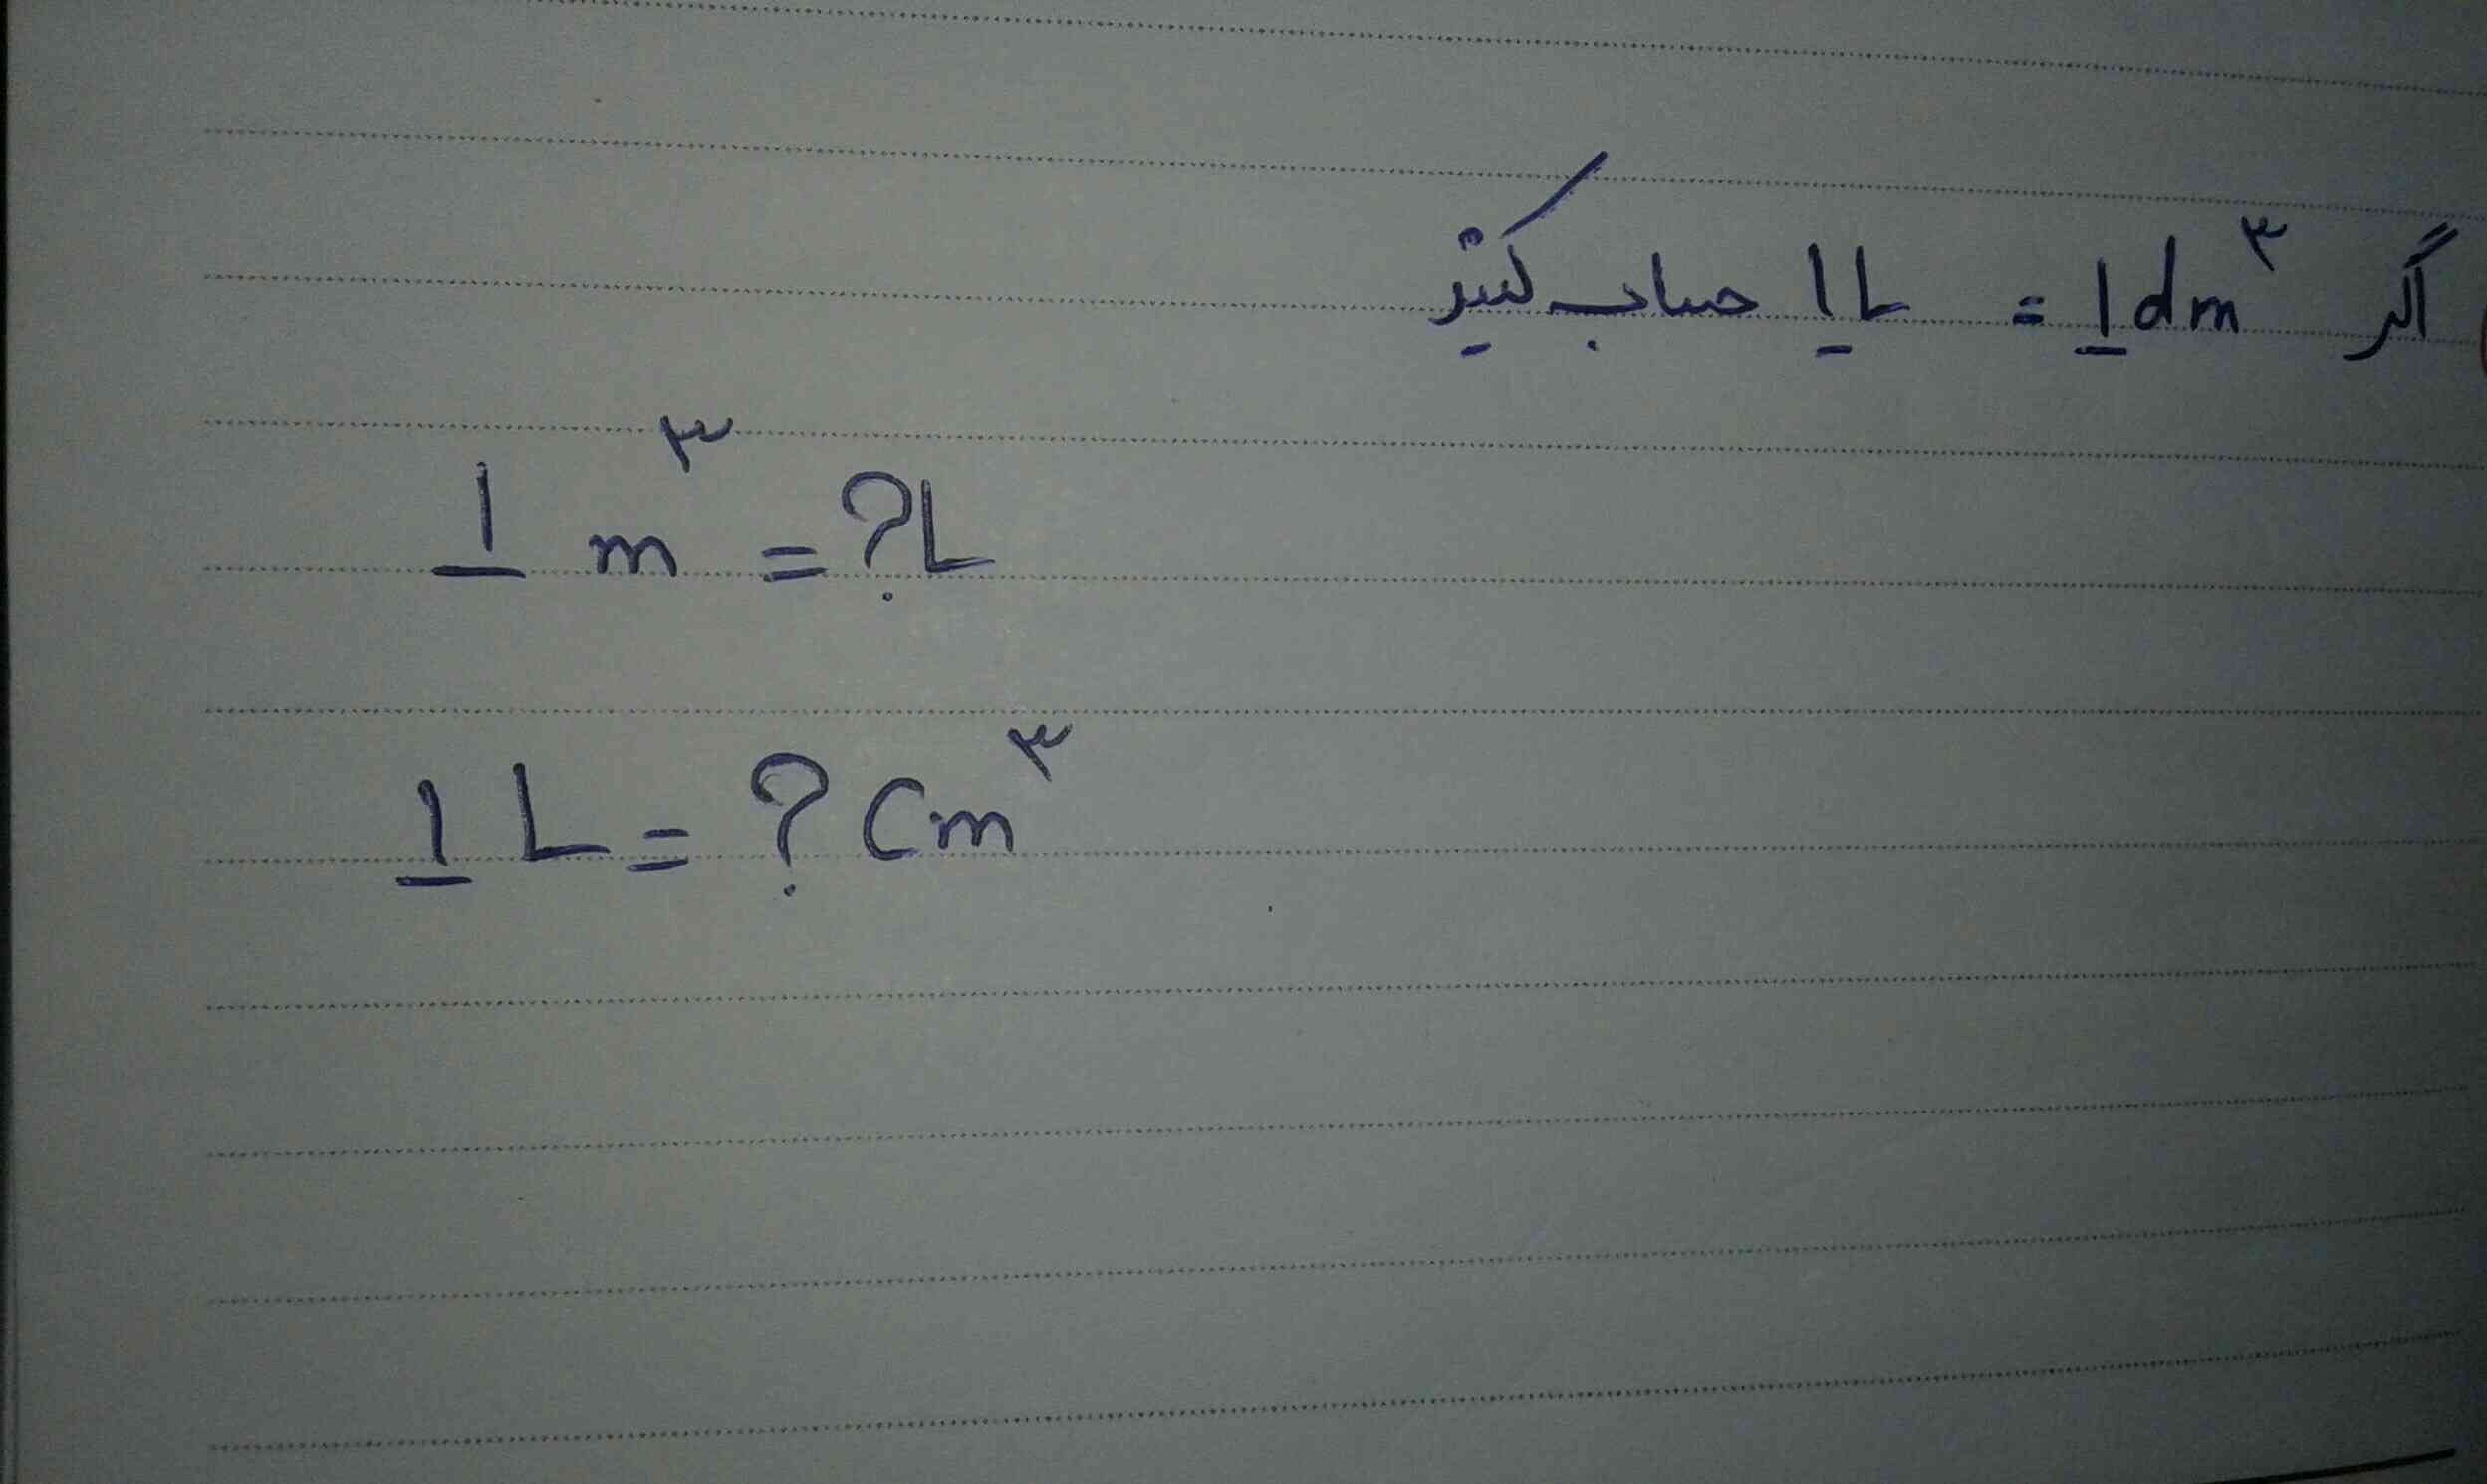 اگر 1dm³ = 1L حساب کنید
1 m³ = ?L
1 L = ? Cm³